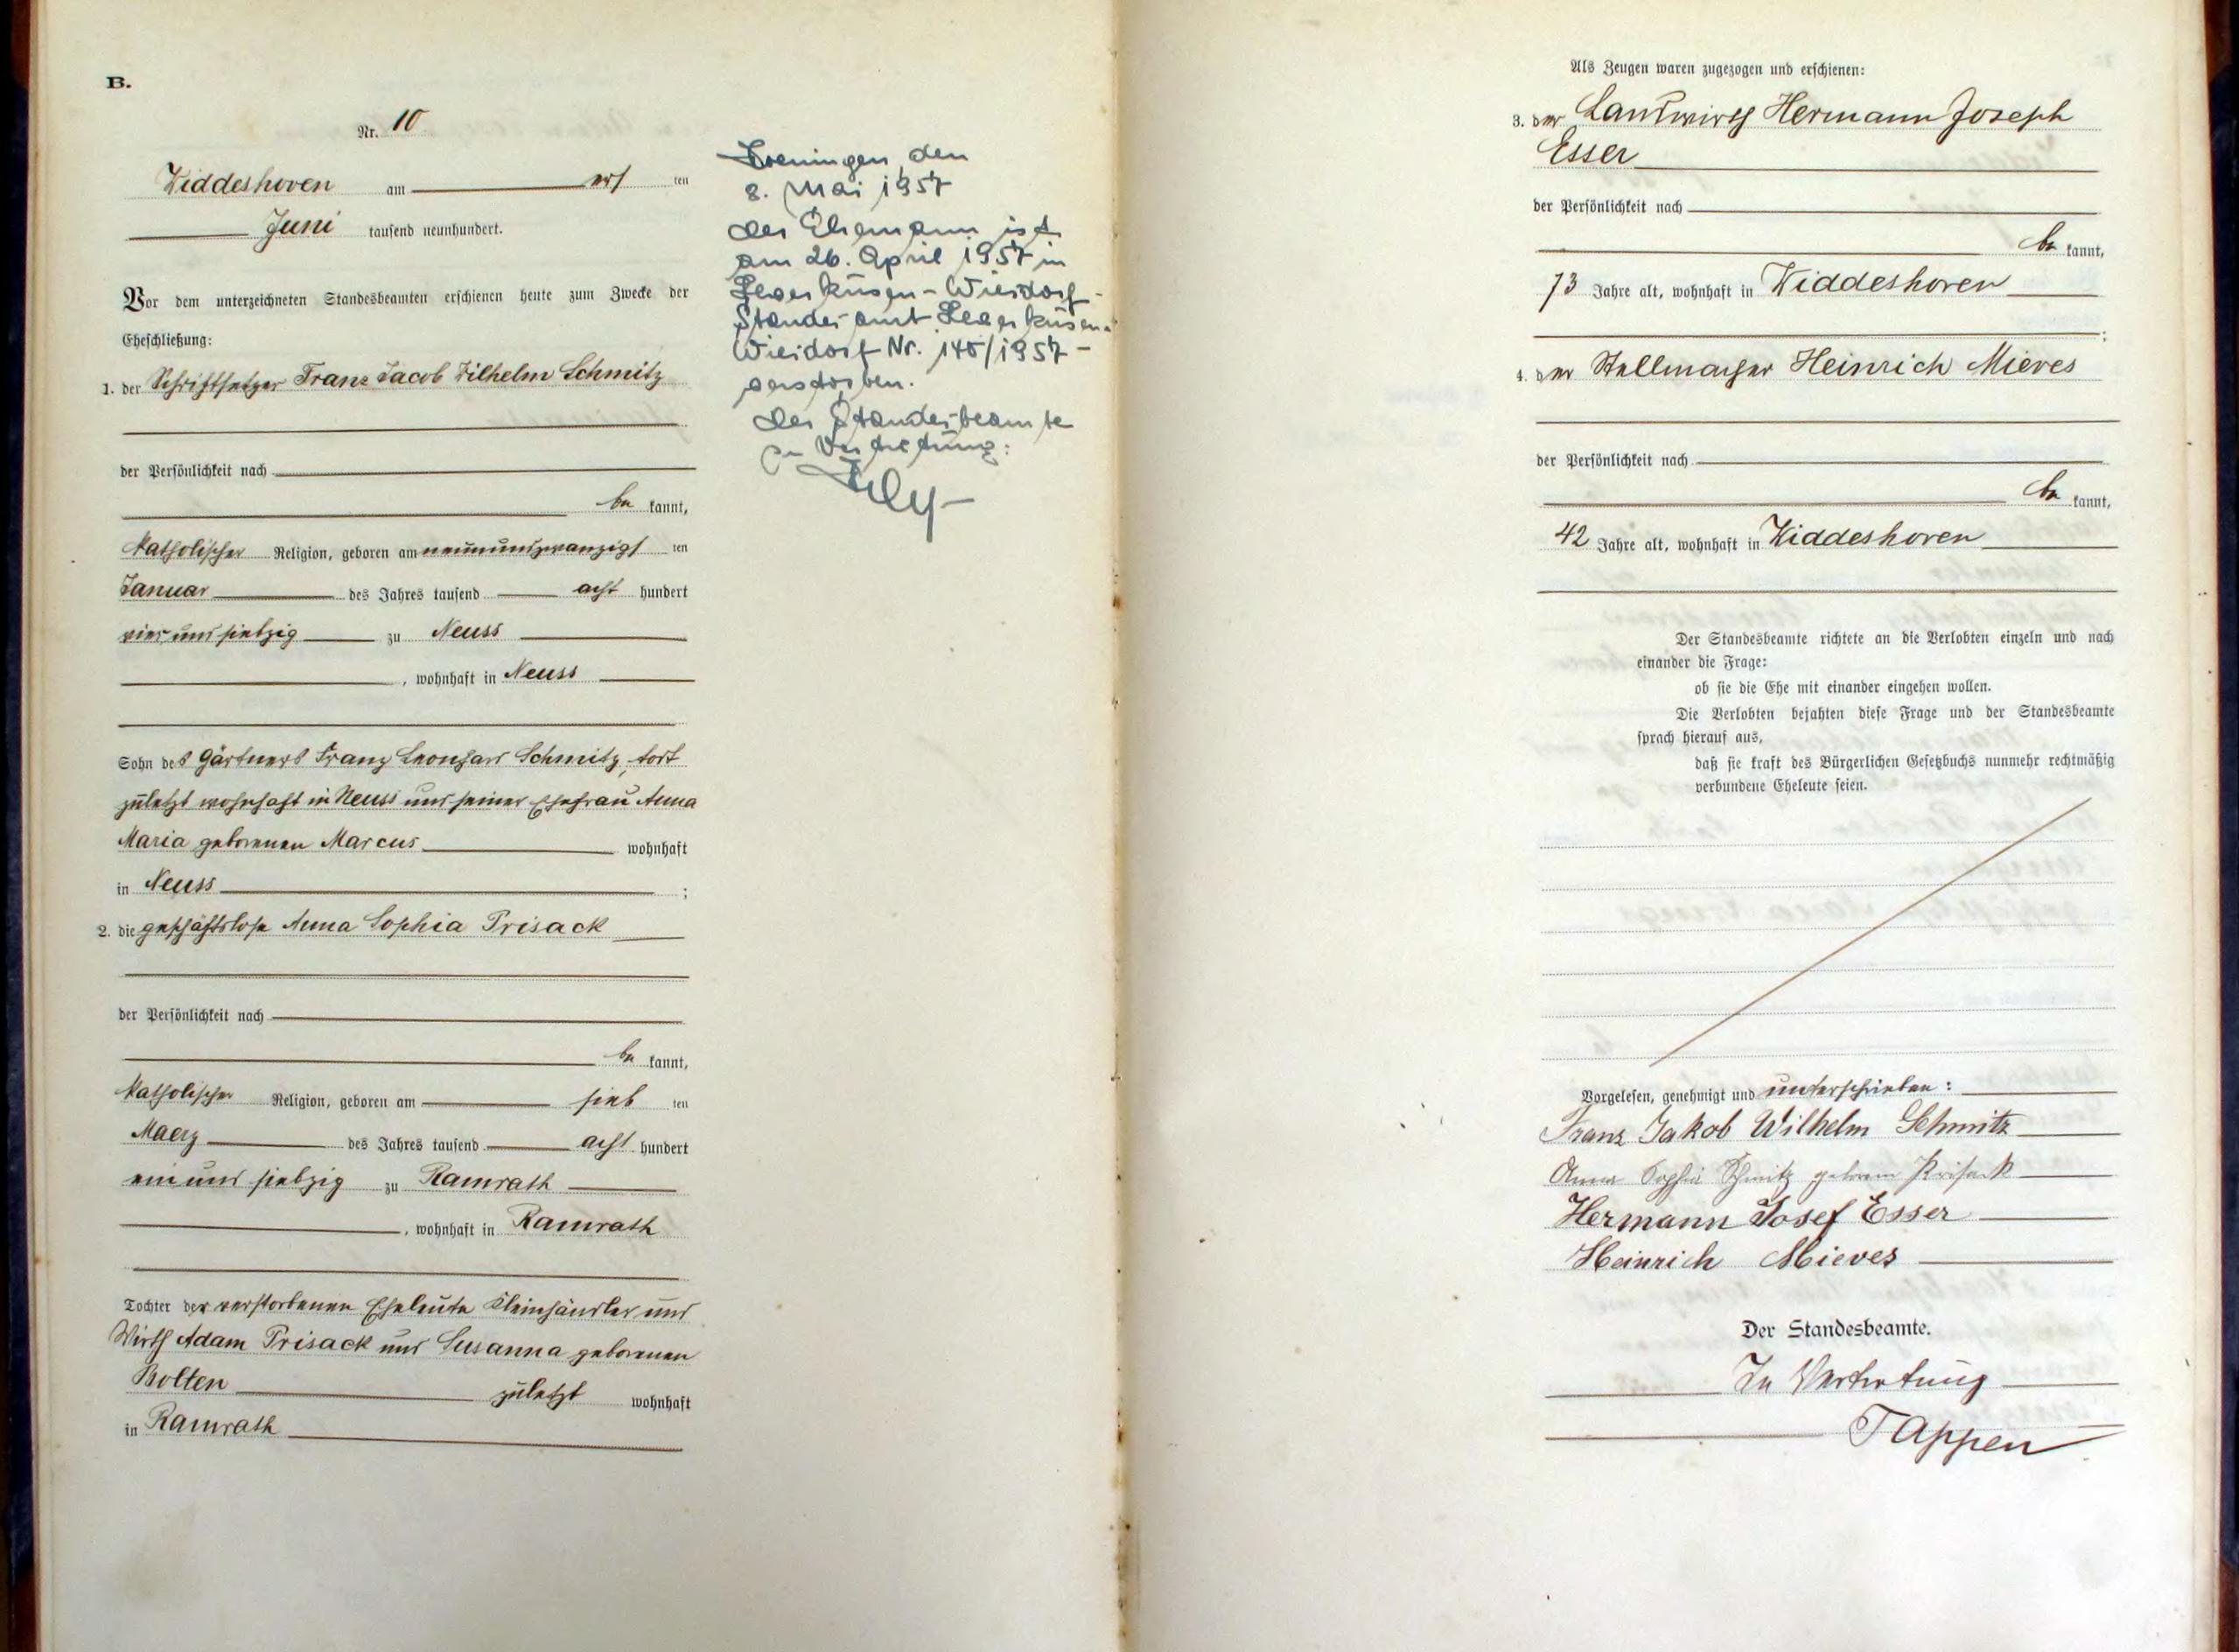 B.
Nr. 10
Widdeshoven am erf ten
Juni tausend neunhundert.
Vor dem unterzeichneten Standesbeamten erschienen heute zum Zwecke der
Eheschließung:
1. der Schriftsetzer Franz Jacob Wilhelm Schmitz
der Persönlichkeit nach
be kannt,
katholischer Religion, geboren am neunundzwanzigs ten
Januar des Jahres tausend acht hundert
vier und siebzig zu Neuss
, wohnhaft in Neuss
Sohn des Gärtners Franz Leonhard Schmitz, todt
zuletzt wohnhaft in Neuss und seiner Ehefrau Anna
Maria geborenen Marcus wohnhaft
in Neuss ;
2. die geschäftslose Anna Sophia Prisack
der Persönlichkeit nach
be kannt,
katholischer Religion, geboren am sieb ten
Maerz des Jahres tausend acht hundert
ein und siebzig zu Ramrath
, wohnhaft in Ramrath
Tochter der verstorbenen Eheleute Kleinhändler und
Wirth Adam Prisack und Susanna geborenen
Bolten zuletzt wohnhaft
in Ramrath
Hoeningen, den
8. Mai 1957
Der Ehemann ist
am 26. April 1957 in
Leverkusen-Wiesdorf -
Standesamt Leverkusen-
Wiesdorf Nr. 140/1957 -
verstorben.
Der Standesbeamte
In Vertretung:
Als Zeugen waren zugezogen und erschienen:
3. der Landwirth Hermann Joseph
Esser
der Persönlichkeit nach
be kannt,
73 Jahre alt, wohnhaft in Widdeshoven
;
4. der Stellmacher Heinrich Mieves
der Persönlichkeit nach
be kannt,
42 Jahre alt, wohnhaft in Widdeshoven
Der Standesbeamte richtete an die Verlobten einzeln und nach
einander die Frage:
ob sie die Ehe mit einander eingehen wollen.
Die Verlobten bejahten diese Frage und der Standesbeamte
sprach hierauf aus,
daß sie kraft des Bürgerlichen Gesetzbuchs nunmehr rechtmäßig
verbundene Eheleute seien.
Vorgelesen, genehmigt und unterschrieben:
Franz Jakob Wilhelm Schmitz
Anna Sophia Schmitz geboren Prisack
Hermann Josef Esser
Heinrich Mieves
Der Standesbeamte.
In Vertretung
Tappen